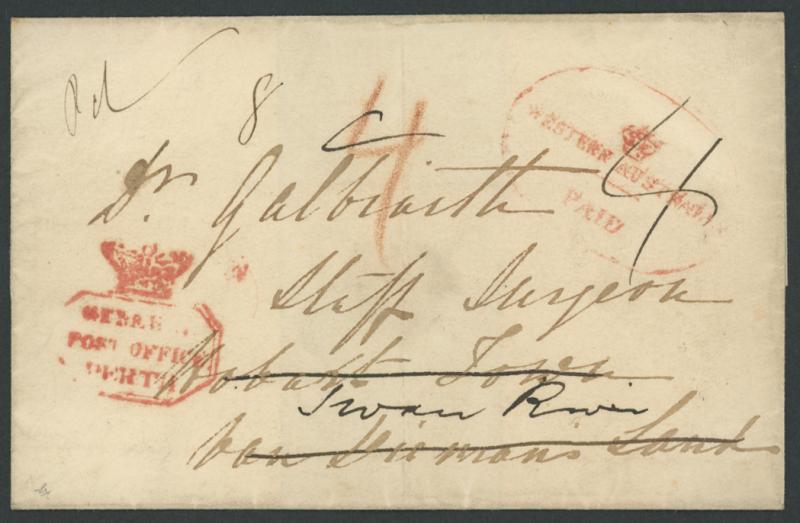 Pd
8
4
4
WESTERN AUSTRALIA
PAID
Dr Galbraith
Staff Surgeon
GENERAL
POST OFFICE
PERTH
Hobart Town
Swan River
Van Diemans Land